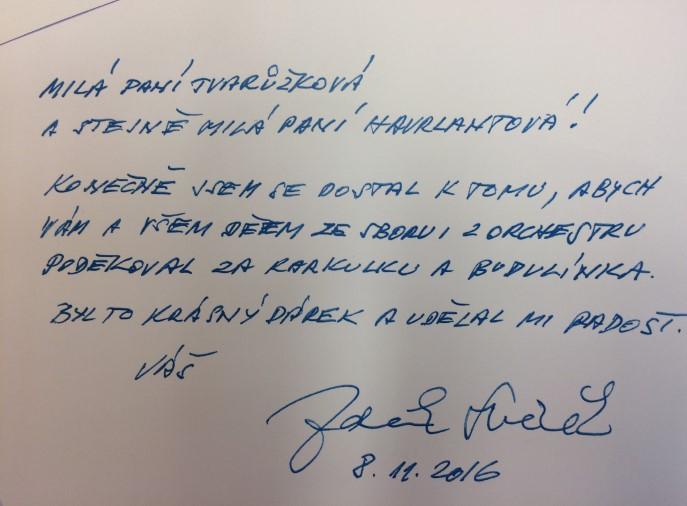 MILÁ PANÍ TVARŮŽKOVÁ
A STEJNĚ MILÁ PANÍ HAVRLANTOVÁ!
KONEČNĚ JSEM SE DOSTAL K TOMU, ABYCH
VÁM A VŠEM DĚTEM ZE SBORU I Z ORCHESTRU
PODĚKOVAL ZA KARKULKU A BUDULÍNKA.
BYL TO KRÁSNÝ DÁREK A UDĚLAL MI RADOST.
VÁŠ
Zdeněk Svěrák
8.11.2016